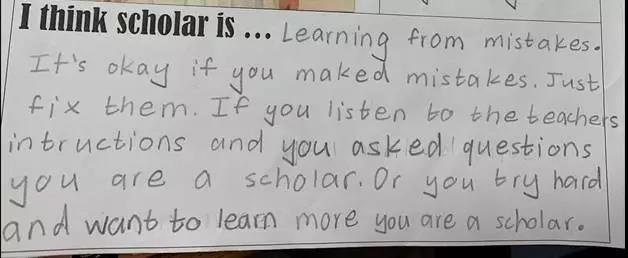 I think scholar is ... Learning from mistakes.
It's okay if you maked mistakes. Just
fix them. If you listen to the teachers
intructions and you asked questions
you are a scholar. Or you try hard
and want to learn more you are a scholar.